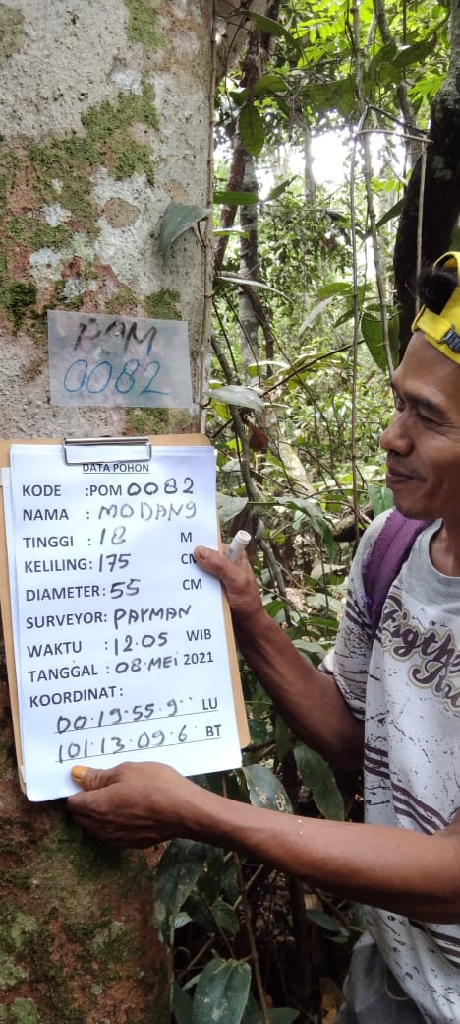 POM
0082
DATA POHON
KODE :POM 0082
NAMA : MODANG
TINGGI : 18 M
KELILING: 175 CM
DIAMETER: 55 CM
SURVEYOR: PAYMAN
WAKTU : 12.05 WIB
TANGGAL : 08 MEI 2021
KOORDINAT :
00.19.55.9" LU
101.13.09.6" BT